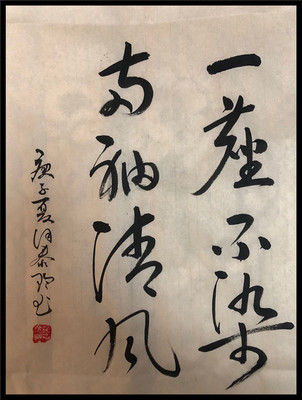 一塵不染
两袖清风
庚子夏